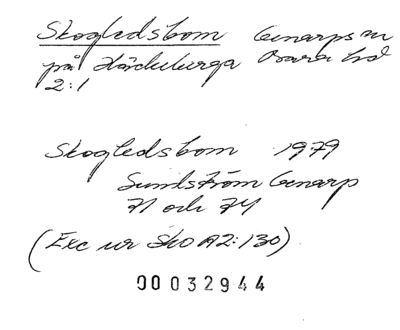 Skogledsbom Genarps sn
på Härdeberga Bara hd
2:1
Skogledsbom 1979
Sundström Genarp
71 och 74
(Exc ur Sko A2:130)
00032944